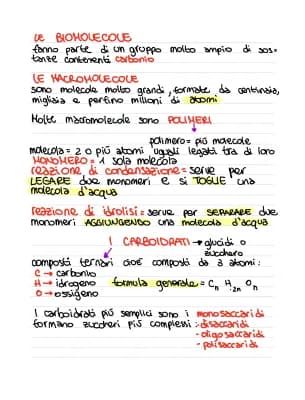 LE BIOMOLECOLE
fanno parte di un gruppo molto ampio di sos-
tanze contenenti carbonio
LE MACROMOLECOLE
sono molecole molto grandi, formate da centinaia,
migliaia e perfino milioni di atomi
Molte macromolecole sono POLIMERI
polimero= più molecole
molecola= 2 o più atomi uguali legati tra di loro
MONOMERO= 1 sola molecola
reazione di condensazione= serve per
LEGARE due monomeri e si TOGLIE una
molecola d'acqua
reazione di idrolisi= serve per SEPARARE due
monomeri AGGIUNGENDO una molecola d'acqua
I CARBOIDRATI → glucidi o
zucchero
composti ternari cioè composti da 3 atomi:
C → carbonio
H → idrogeno formula generale= Cn H2n On
O → ossigeno
I carboidrati più semplici sono i monosaccaridi
formano zuccheri più complessi: - disaccaridi
- oligosaccaridi
- polisaccaridi